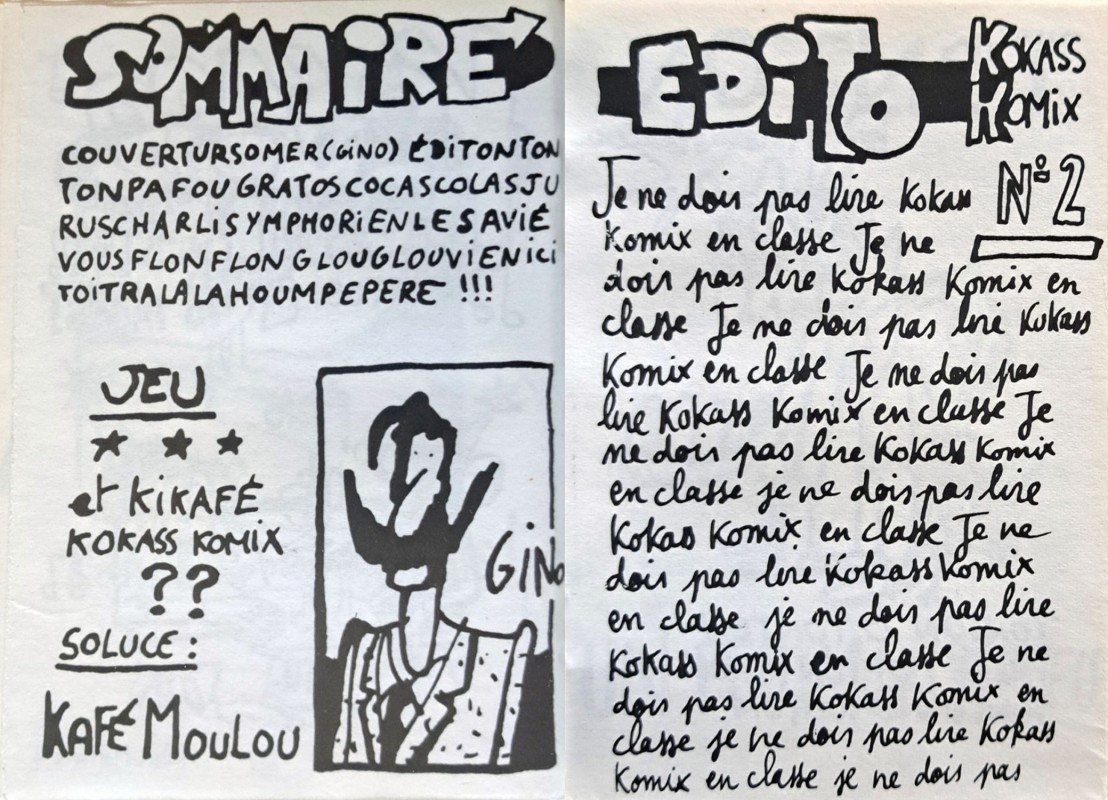 SOMMAIRE
COUVERTURSOMER(GINO) ÉDITONTON
TONPAFOU GRATOSCOCASCOLASJU
RUSCHARLISYMPHORIENLESAVIÉ
VOUSFLONFLONGLOUGLOUVIENICI
TOITRALALAHOUMPEPERE !!!
JEU
et KIKAFÉ
KOKASS KOMIX
??
SOLUCE :
KAFÉ MOULOU
GINO
EDITO
KOKASS
KOMIX
N° 2
Je ne dois pas lire Kokass
Komix en classe Je ne
dois pas lire Kokass Komix en
classe Je ne dois pas lire Kokass
Komix en classe Je ne dois pas
lire Kokass Komix en classe Je
ne dois pas lire Kokass Komix
en classe je ne dois pas lire
Kokass Komix en classe Je ne
dois pas lire Kokass Komix
en classe je ne dois pas lire
Kokass Komix en classe Je ne
dois pas lire Kokass Komix en
classe je ne dois pas lire Kokass
Komix en classe je ne dois pas